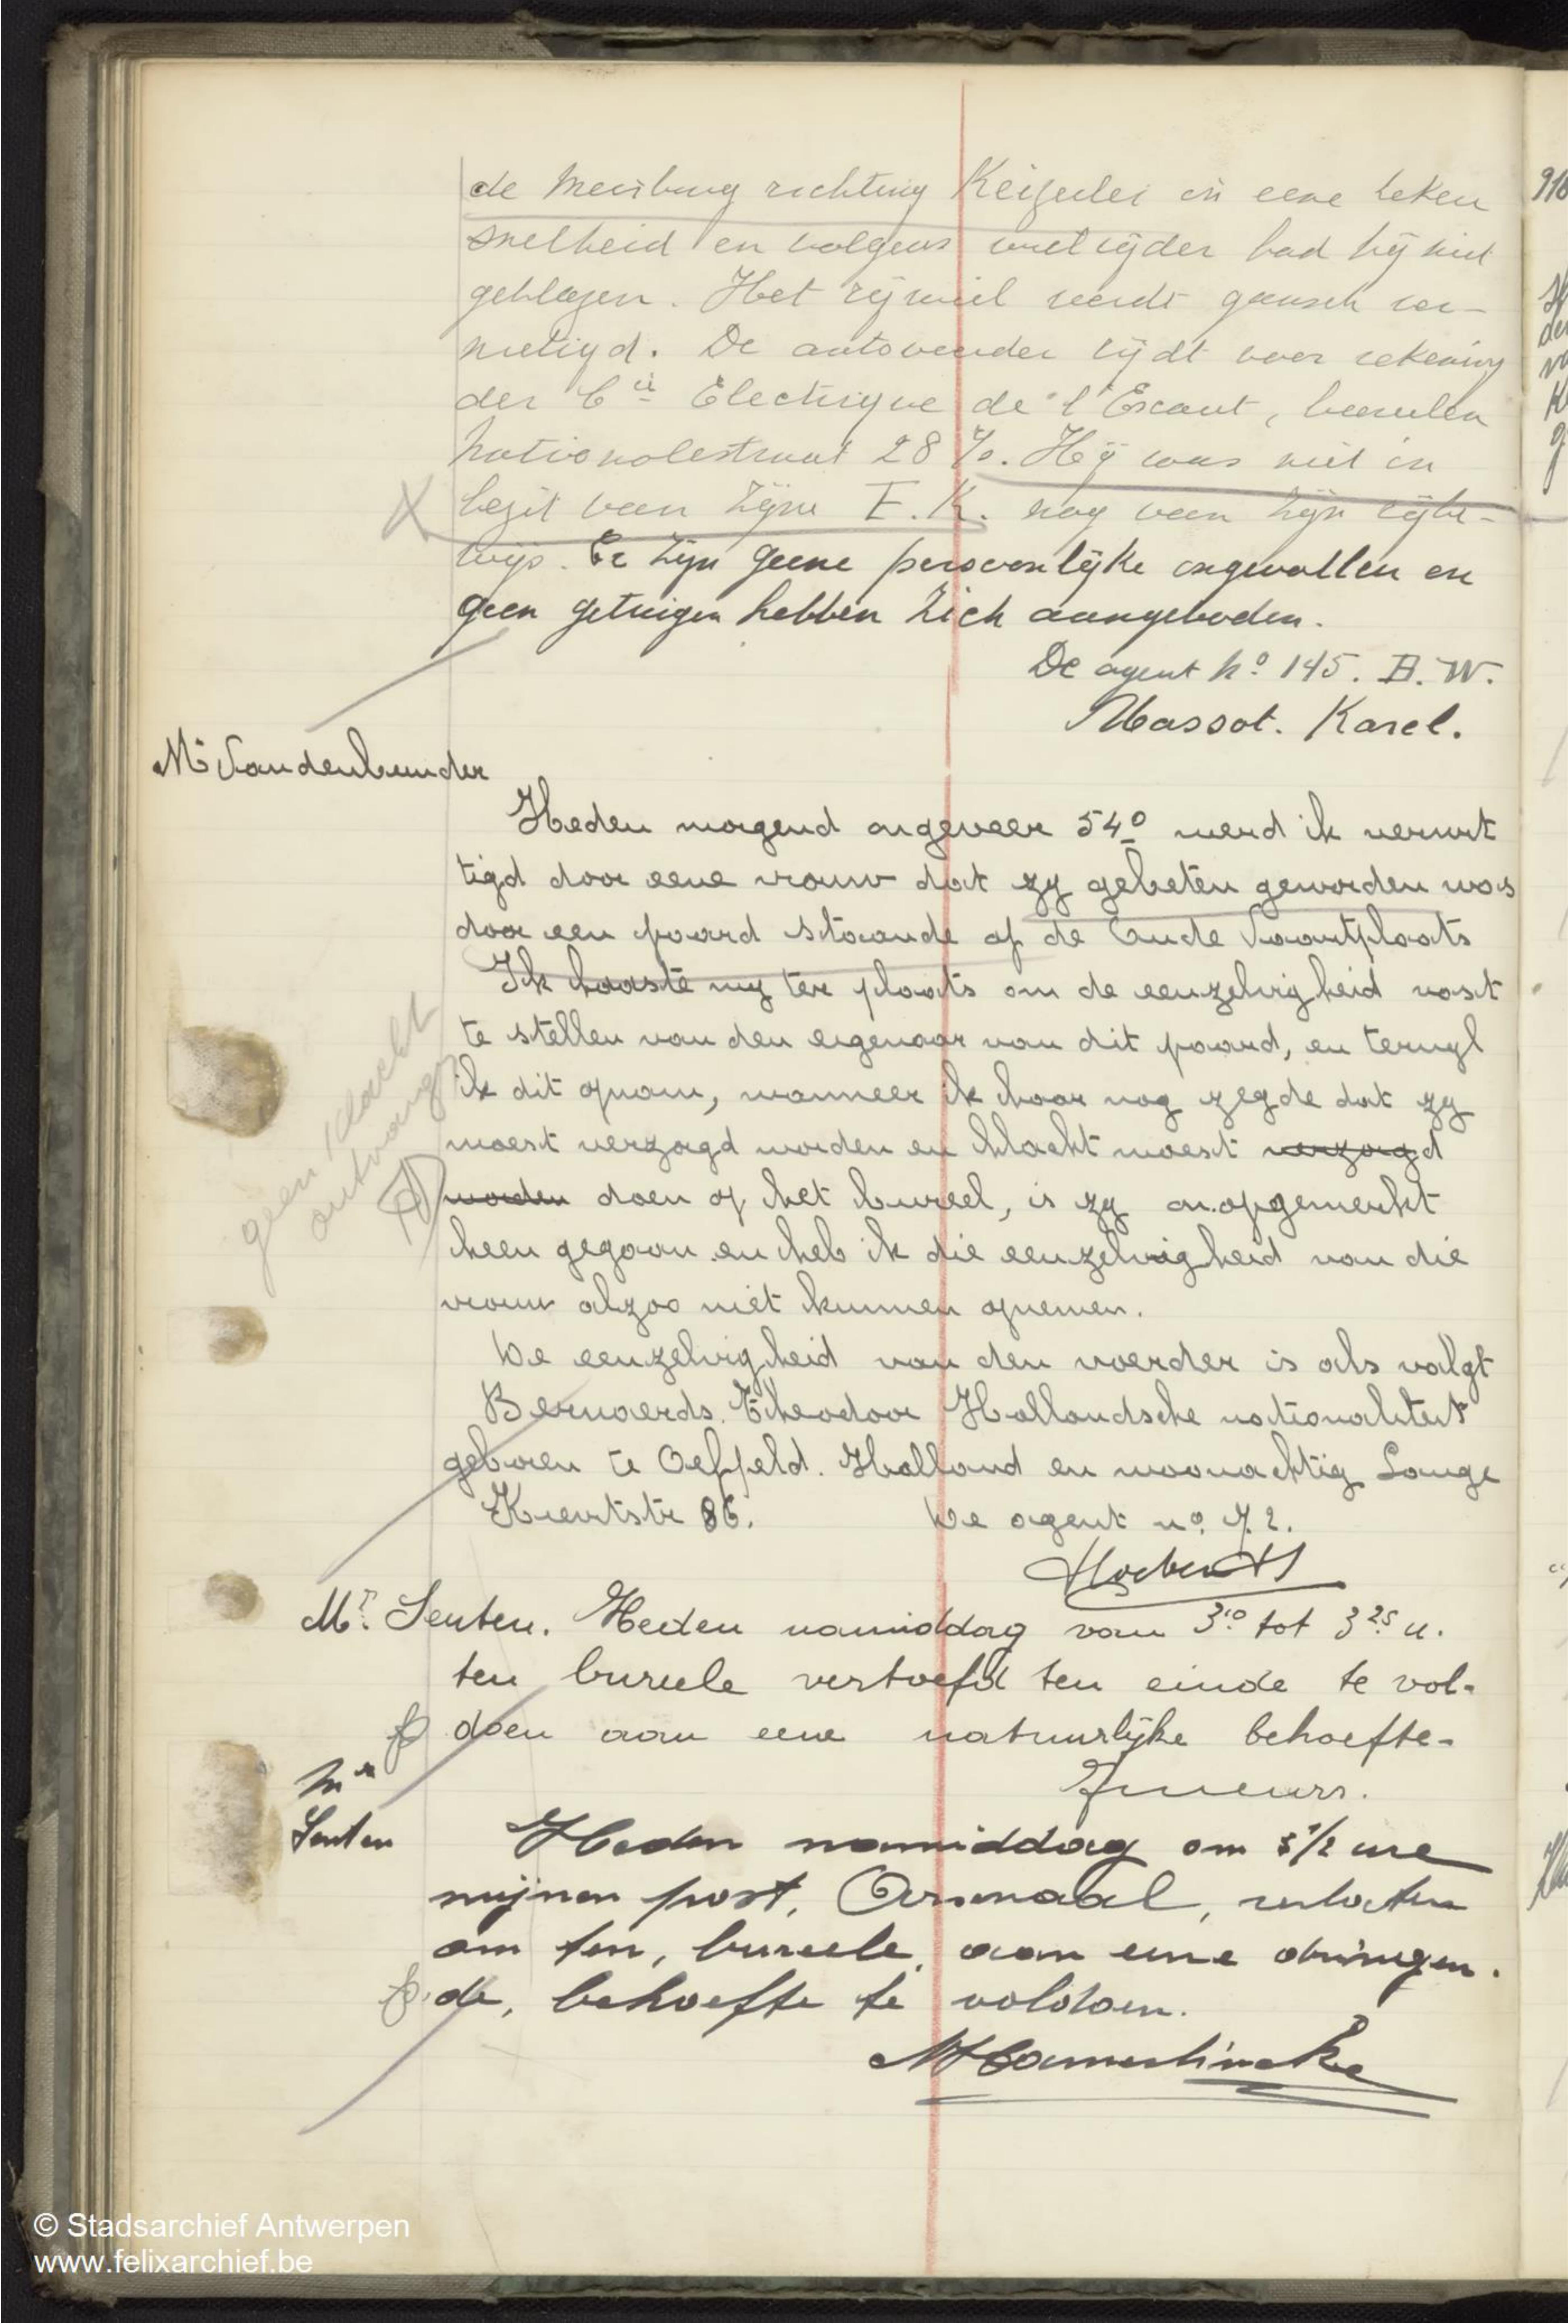 de Meirbrug richting Keizerlei in eene zekere
snelheid en volgens wielrijder had hij niet
geblazen. Het rijwiel werdt gansch ver-
nietigd. De autovoerder rijdt voor rekening
der Cie Electrique de l'Escaut, bureelen
Nationalestraat 28 %. Hij was niet in
bezit van zijne E.K. nog van zijn rijbe-
wijs. Er zijn geene persoonlijke ongevallen en
geen getuigen hebben zich aangeboden.
De agent No 145. B. W.
Massot. Karel.
Mr Vandenbemder
Heden morgend ongeveer 5 40 werd ik verwit
tigd door eene vrouw dat zy gebeten geworden was
door een paard staande op de Oude Vaartplaats
Ik haaste my ter plaats om de eenzelvigheid vast
te stellen van den eigenaar van dit paard, en terwyl
ik dit opnam, wanneer ik haar nog zegde dat zy
moest verzorgd worden en klacht moest verzorgd
worden doen op het bureel, is zy onopgemerkt
heen gegaan en heb ik die eenzelvigheid van die
vrouw alzoo niet kunnen opnemen.
geen klacht
ontvangen
De eenzelvigheid van den voerder is als volgt
Bernaerds. Theodoor Hollandsche nationaliteit
geboren te Oeffeld. Holland en woonachtig Lange
Kievitstr 86. De agent no. 72.
Mr. Senten. Heden namiddag van 3 10 tot 3 25 u.
ten bureele vertoefd ten einde te vol-
doen aan eene natuurlijke behoefte-
Mr
Senten Heden namiddag om 5 1/2 ure
mijnen post, Arsenaal, verlaten
om ten, bureele, aan eene dringen.
de, behoefte te voldoen.
© Stadsarchief Antwerpen
www.felixarchief.be